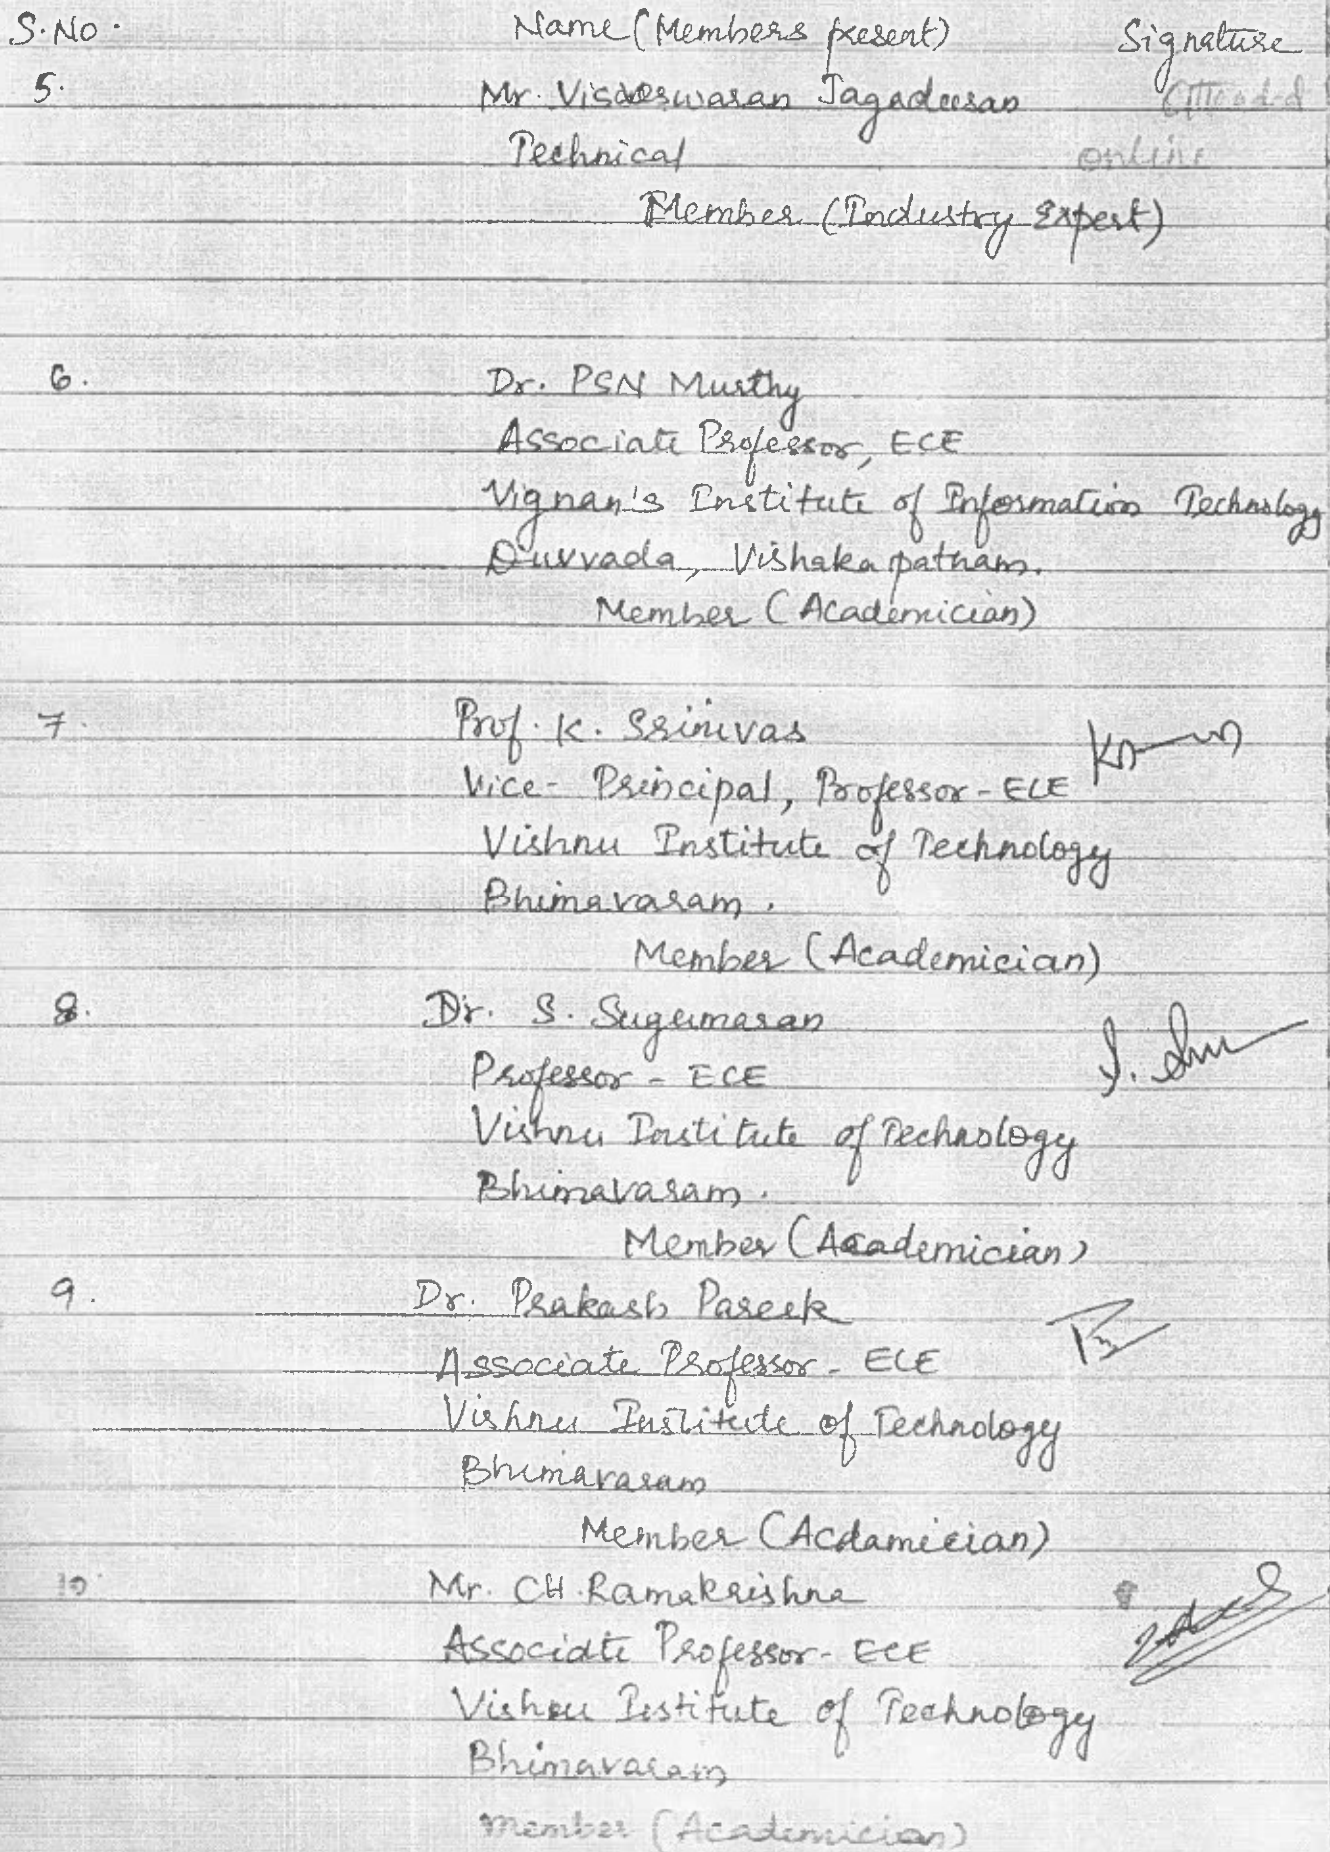 S.No. Name (Members present) Signature
5. Mr. Visweswaran Jagadeesan Attended
Technical online
Member (Industry Expert)
6. Dr. PSN Murthy
Associate Professor, ECE
Vignan's Institute of Information Technology
Duvvada, Vishakapatnam.
Member (Academician)
7. Prof. K. Srinivas
Vice- Principal, Professor - ECE
Vishnu Institute of Technology
Bhimavaram.
Member (Academician)
8. Dr. S. Sugumaran
Professor - ECE
Vishnu Institute of Technology
Bhimavaram.
Member (Academician)
9. Dr. Prakash Pareek
Associate Professor - ECE
Vishnu Institute of Technology
Bhimavaram
Member (Acdamician)
10 Mr. CH. Ramakrishna
Associate Professor - ECE
Vishnu Institute of Technology
Bhimavaram
Member (Academician)